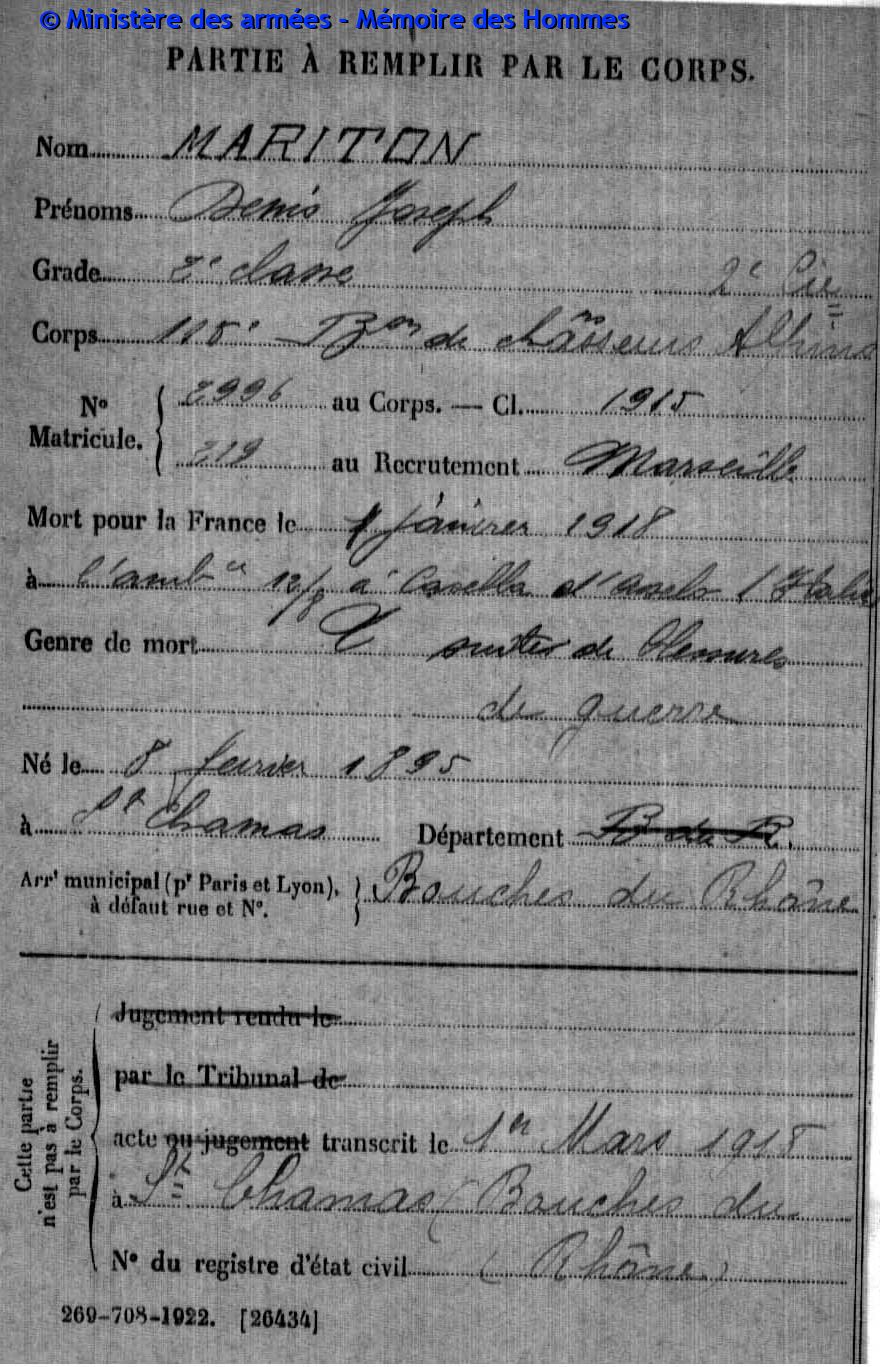 © Ministère des armées - Mémoire des Hommes
PARTIE À REMPLIR PAR LE CORPS.
Nom MARITON
Prénoms Denis Joseph
Grade 2e classe 2e Cie
Corps 115e Bon de chasseurs Alpins
No Matricule. 2996 au Corps. — Cl. 1915
219 au Recrutement Marseille
Mort pour la France le 1 janvier 1918
à l'ambce 12/8 à Casella d'Asolo (Italie
Genre de mort suites de blessures
de guerre
Né le 8 février 1895
à St Chamas Département B du R.
Arrt municipal (pr Paris et Lyon),
à défaut rue et No. Bouches du Rhône
Cette partie
n'est pas à remplir
par le Corps.
Jugement rendu le
par le Tribunal de
acte ou jugement transcrit le 1er Mars 1918
à St Chamas (Bouches du
No du registre d'état civil (Rhône)
269-708-1922. [26434]